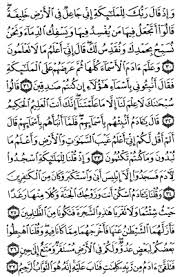 وَإِذْ قَالَ رَبُّكَ لِلْمَلَٰٓئِكَةِ إِنِّي جَاعِلٌ فِي ٱلْأَرْضِ خَلِيفَةً
قَالُوٓا۟ أَتَجْعَلُ فِيهَا مَن يُفْسِدُ فِيهَا وَيَسْفِكُ ٱلدِّمَآءَ وَنَحْنُ
نُسَبِّحُ بِحَمْدِكَ وَنُقَدِّسُ لَكَ قَالَ إِنِّيٓ أَعْلَمُ مَا لَا تَعْلَمُونَ
٣٠ وَعَلَّمَ ءَادَمَ ٱلْأَسْمَآءَ كُلَّهَا ثُمَّ عَرَضَهُمْ عَلَى ٱلْمَلَٰٓئِكَةِ
فَقَالَ أَنۢبِـُٔونِي بِأَسْمَآءِ هَٰٓؤُلَآءِ إِن كُنتُمْ صَٰدِقِينَ ٣١ قَالُوا۟
سُبْحَٰنَكَ لَا عِلْمَ لَنَآ إِلَّا مَا عَلَّمْتَنَآ إِنَّكَ أَنتَ ٱلْعَلِيمُ ٱلْحَكِيمُ
٣٢ قَالَ يَٰٓـَٔادَمُ أَنۢبِئْهُم بِأَسْمَآئِهِمْ فَلَمَّآ أَنۢبَأَهُم بِأَسْمَآئِهِمْ
قَالَ أَلَمْ أَقُل لَّكُمْ إِنِّيٓ أَعْلَمُ غَيْبَ ٱلسَّمَٰوَٰتِ وَٱلْأَرْضِ وَأَعْلَمُ
مَا تُبْدُونَ وَمَا كُنتُمْ تَكْتُمُونَ ٣٣ وَإِذْ قُلْنَا لِلْمَلَٰٓئِكَةِ ٱسْجُدُوا۟
لِـَٔادَمَ فَسَجَدُوٓا۟ إِلَّآ إِبْلِيسَ أَبَىٰ وَٱسْتَكْبَرَ وَكَانَ مِنَ ٱلْكَٰفِرِينَ
٣٤ وَقُلْنَا يَٰٓـَٔادَمُ ٱسْكُنْ أَنتَ وَزَوْجُكَ ٱلْجَنَّةَ وَكُلَا مِنْهَا رَغَدًا
حَيْثُ شِئْتُمَا وَلَا تَقْرَبَا هَٰذِهِ ٱلشَّجَرَةَ فَتَكُونَا مِنَ ٱلظَّٰلِمِينَ
٣٥ فَأَزَلَّهُمَا ٱلشَّيْطَٰنُ عَنْهَا فَأَخْرَجَهُمَا مِمَّا كَانَا فِيهِ وَقُلْنَا ٱهْبِطُوا۟
بَعْضُكُمْ لِبَعْضٍ عَدُوٌّ وَلَكُمْ فِي ٱلْأَرْضِ مُسْتَقَرٌّ وَمَتَٰعٌ إِلَىٰ حِينٍ
٣٦ فَتَلَقَّىٰٓ ءَادَمُ مِن رَّبِّهِ كَلِمَٰتٍ فَتَابَ عَلَيْهِ إِنَّهُ هُوَ ٱلتَّوَّابُ ٱلرَّحِيمُ